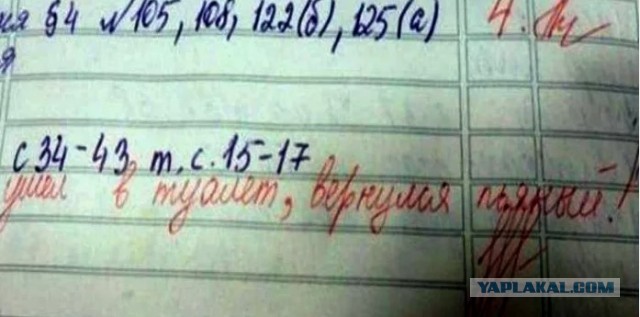 §4 №105, 108, 122(б), 125(а) 4.
я
с 34-43 т, с. 15-17
ушел в туалет, вернулся пьяный!
YAPLAKAL.COM